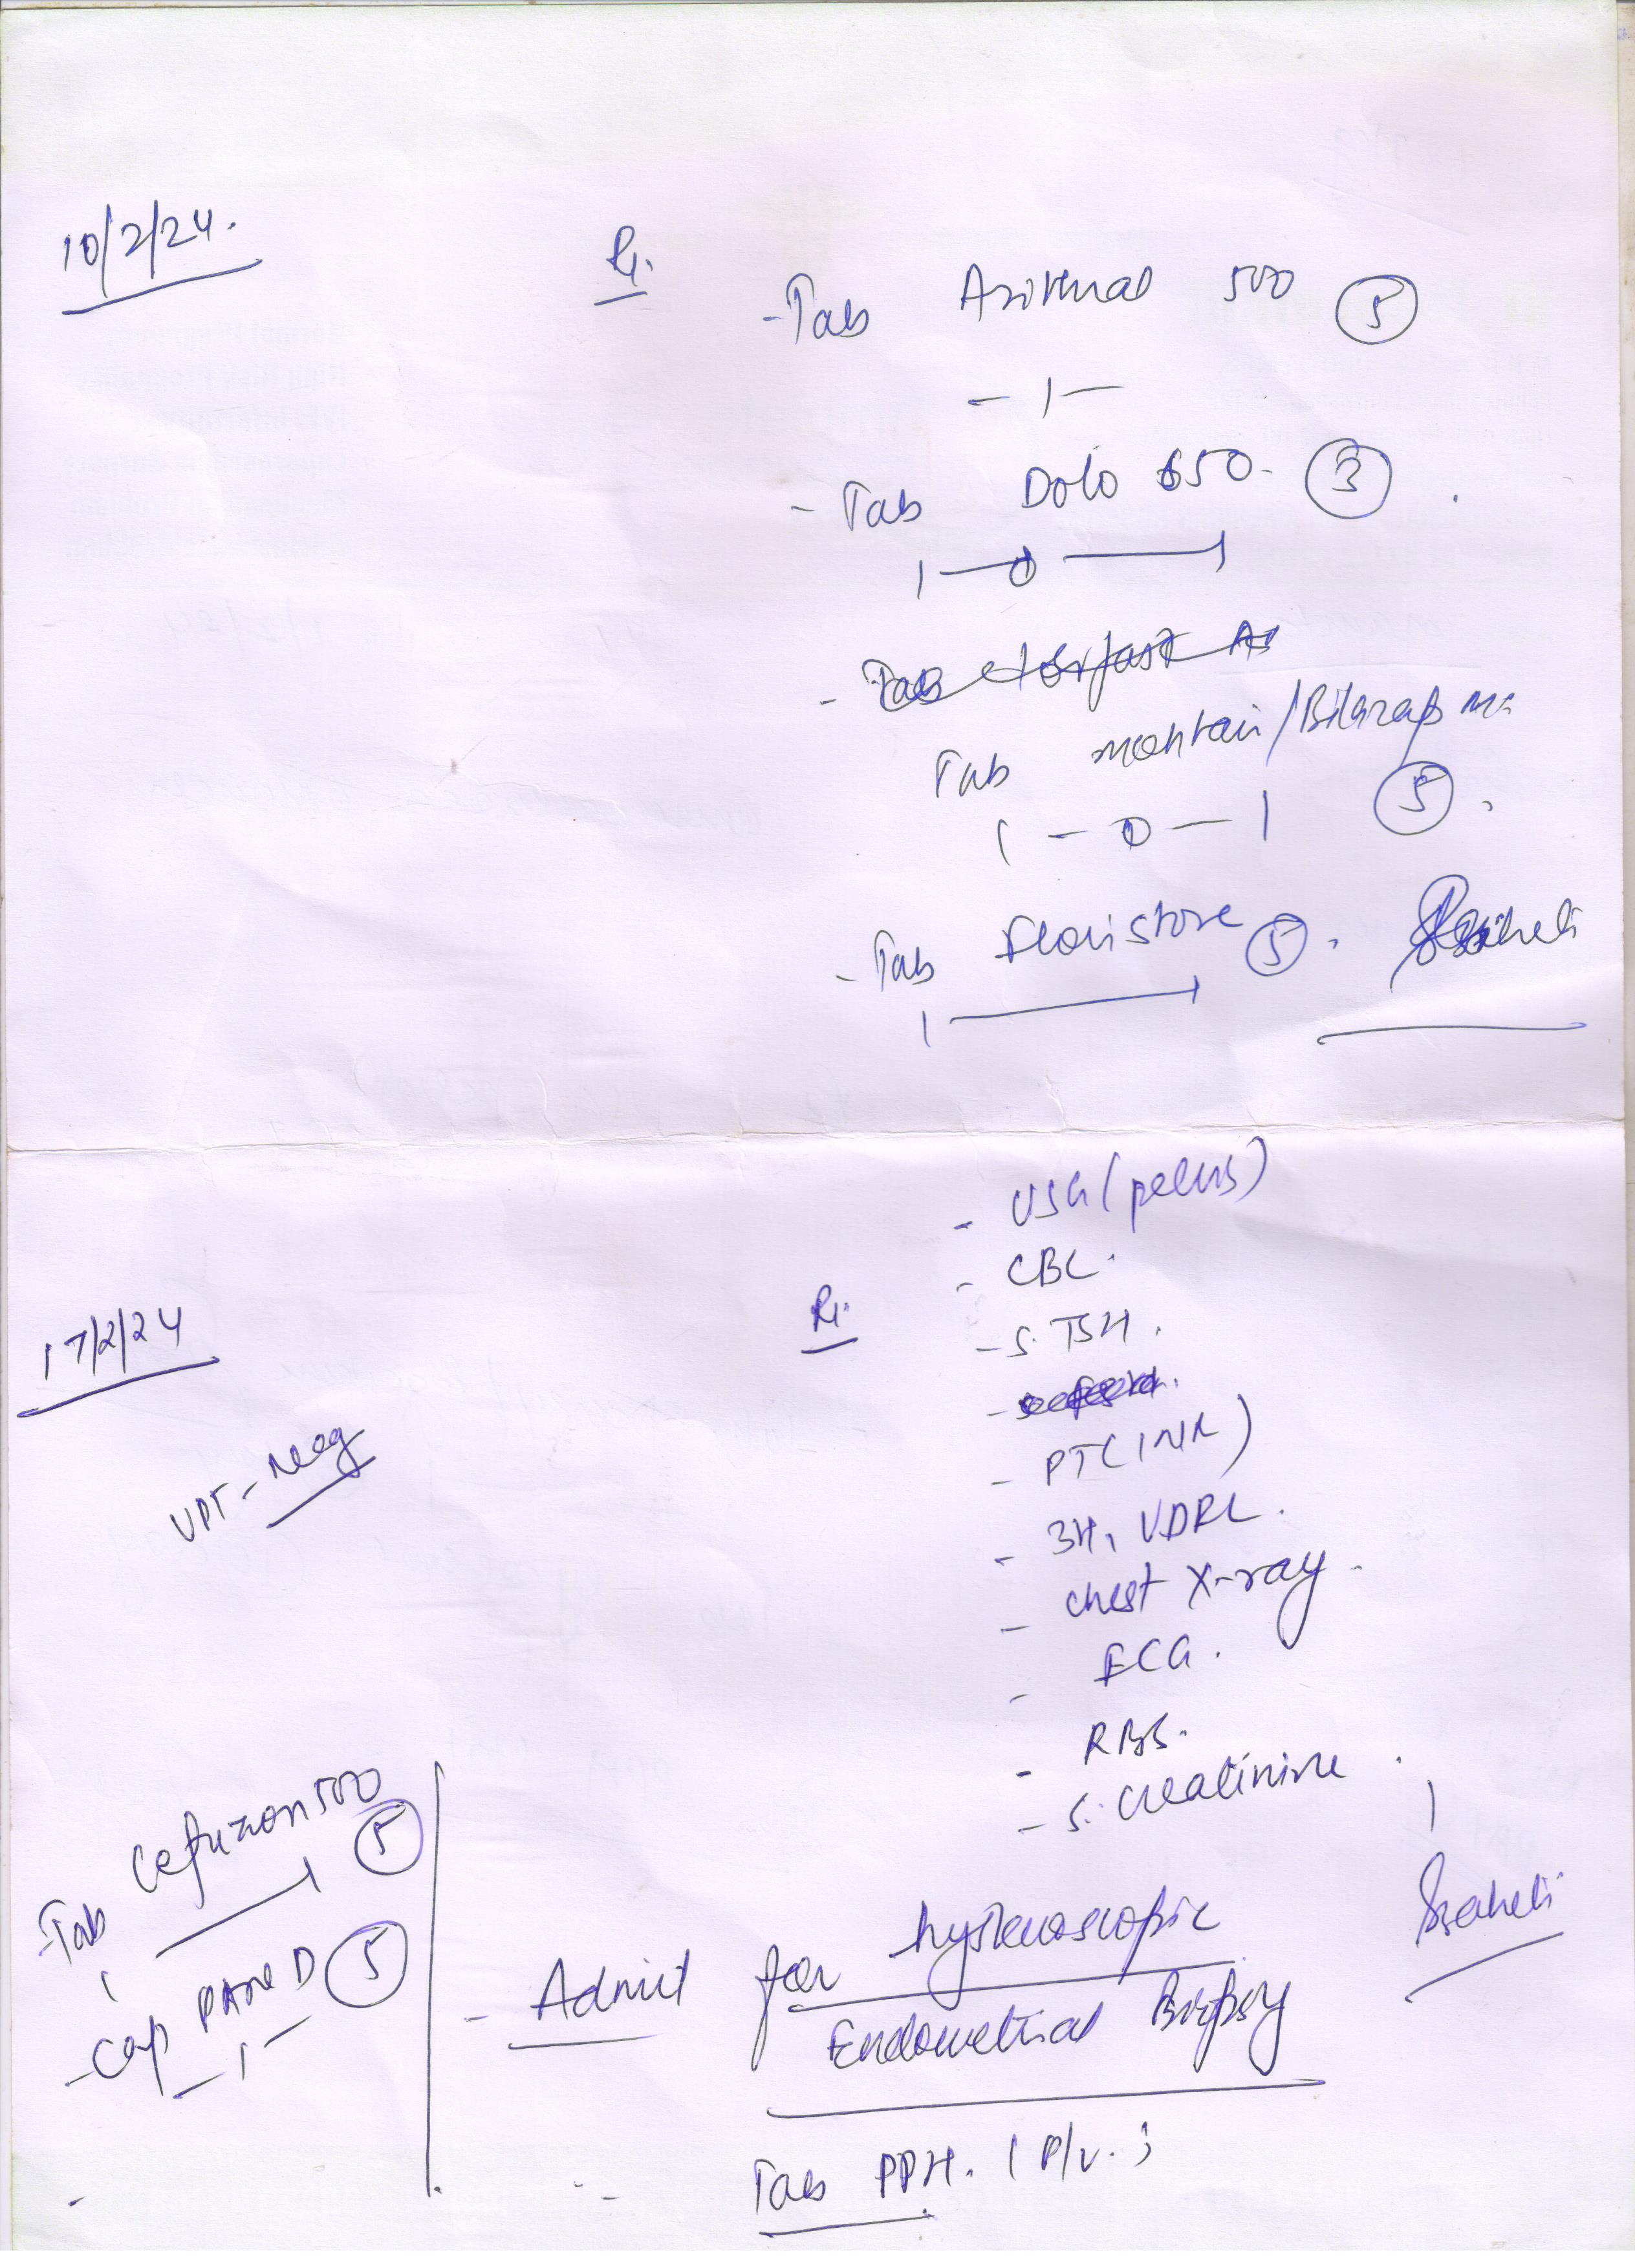 10/2/24.
Rx.
- Tab Azithral 500 (5)
- 1 -
- Tab Dolo 650 - (3)
1 - 0 - 1
- Tab
Tab /Bilazap M
1 - 0 - 1 (5).
- Tab (5).
1 - 1
17/2/24
Rx.
UPT - Neg
- USG (pelvis)
- CBC.
- S. TSH.
- PT (INR)
- 3H, VDRL.
- chest X-ray.
- ECG.
- RBS.
- S. creatinine.
- Tab 500 (5)
1 - 1
- Cap PAN D (5)
- 1 -
- Admit for hysteroscopic
Endometrial Biopsy
Tab PPH. (P/V.)